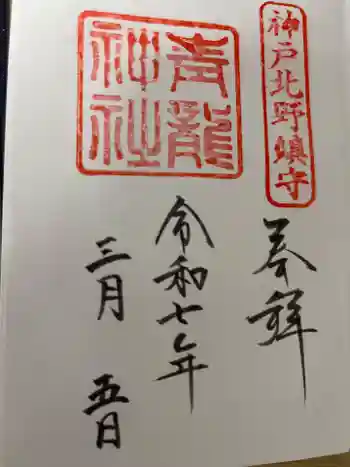 神戸北野鎮守
奉拝
青龍
神社
令和七年
三月 五日